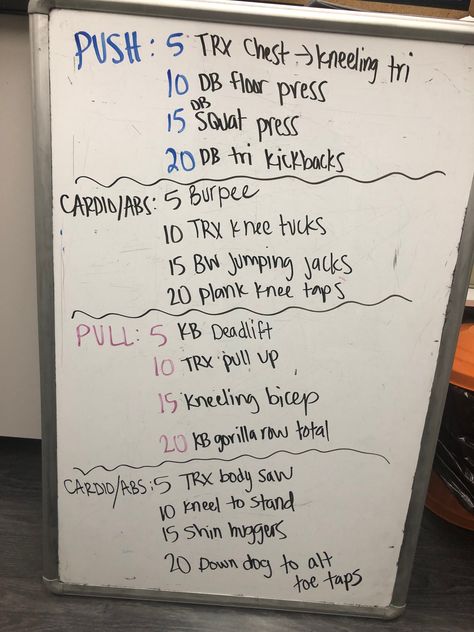 PUSH: 5 TRX Chest → kneeling tri
10 DB floor press
15 DB Squat press
20 DB tri kickbacks
CARDIO/ABS: 5 Burpee
10 TRX knee tucks
15 BW jumping jacks
20 plank knee taps
PULL: 5 KB Deadlift
10 TRX pull up
15 kneeling bicep
20 KB gorilla row total
CARDIO/ABS: 5 TRX body saw
10 kneel to stand
15 shin huggers
20 Down dog to alt
toe taps